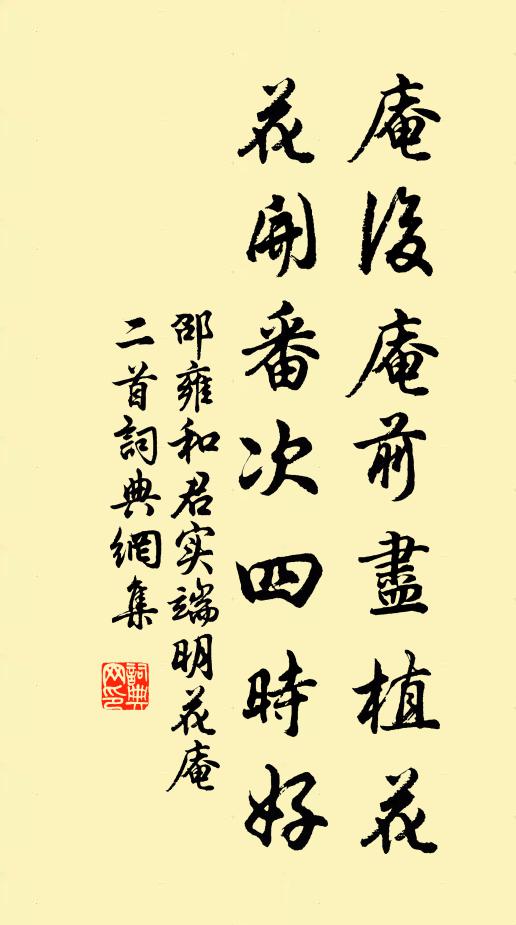 庵後庵前盡植花
花開番次四時好
邵雍和君实端明花庵
二首詞典網集
詞典網印